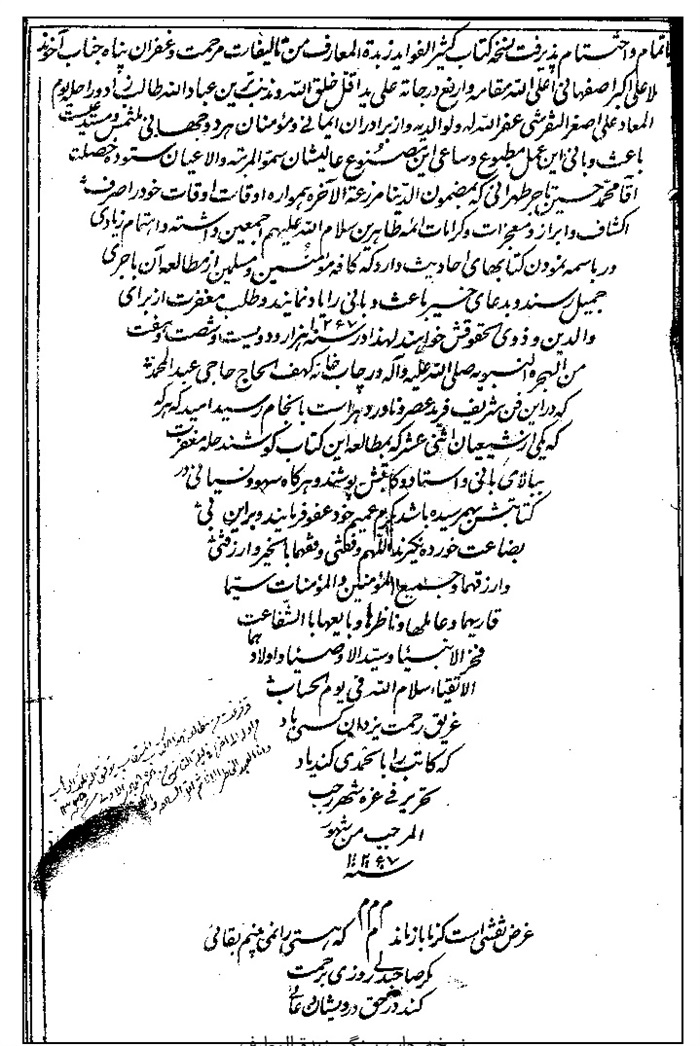 باتمام و اختتام پذیرفت نسخه کتاب کثیر الفواید زبدة المعارف من تالیفات مرحمت و غفران پناه جناب آخوند
ملا علی اکبر اصفهانی اعلی الله مقامه و ارفع درجاته علی ید اقل خلق الله و مذنب ترین عباد الله طالب زاد و راحله یوم
المعاد علی اصغر التفرشی غفر الله له و لوالدیه و از برادران ایمانی و مؤمنان هر دو جهانی ملتمس و مستدعیست
باعث و بانی این عمل مطبوع و ساعی این مصنوع عالیشان سمو المرتبه و الاعیان ستوده خصلت
آقا محمد حسین تاجر طهرانی که بمضمون الدنیا مزرعة الآخره همواره اوقات اوقات خود را صرف
اکشاف و ابراز و معجزات و کرامات ائمه طاهرین سلام الله علیهم اجمعین داشته و اهتمام زیادی
در باسمه نمودن کتابهای احادیث دارد که کافه مؤمنین و مسلمین از مطالعه آن باجری
جمیل رسند و بدعای خیر باعث و بانی را یاد نمایند و طلب مغفرت از برای
والدین و ذوی الحقوقش خواهند لهذا در سنه ۱۲۶۷ هزار و دویست و شصت و هفت
من الهجره النبویه صلی الله علیه و آله در چاپ خانه کهف الحاج حاجی عبد المحمد
که در این فن شریف فرید عصر و نادر دهر است بانجام رسید امید که هر که
که یکی از شیعیان اثنی عشر که بمطالعه این کتاب کوشند حله مغفرت
ببالای بانی و استاد و کاتبش پوشند و هر کاه سهو و نسیانی در
کتابتش بهم رسیده باشد بکرم عمیم خود عفو فرمایند و بر این بی
بضاعت خورده نکیرند اللهم وفقنی و وفقهما بالخیر و ارزقنی
و ارزقهما و جمیع المؤمنین و المؤمنات سیما
قاریهما و عاملها و ناظرها و بایعها بالشفاعت
فخر الانبیا و سید الاوصیا و اولادهما
الاتقیاء سلام الله فی یوم الحساب
غریق رحمت یزدان کسی باد
که کاتب را بالحمدی کند یاد
تحریر فی غره شهر رجب
المرجب من شهور
سنه ۱۲۶۷
م م م م
غرض نقشی است کز ما باز ماند که هستی را نمی بینم بقائی
مکر صاحبدلی روزی برحمت
کند در حق درویشان دعائی